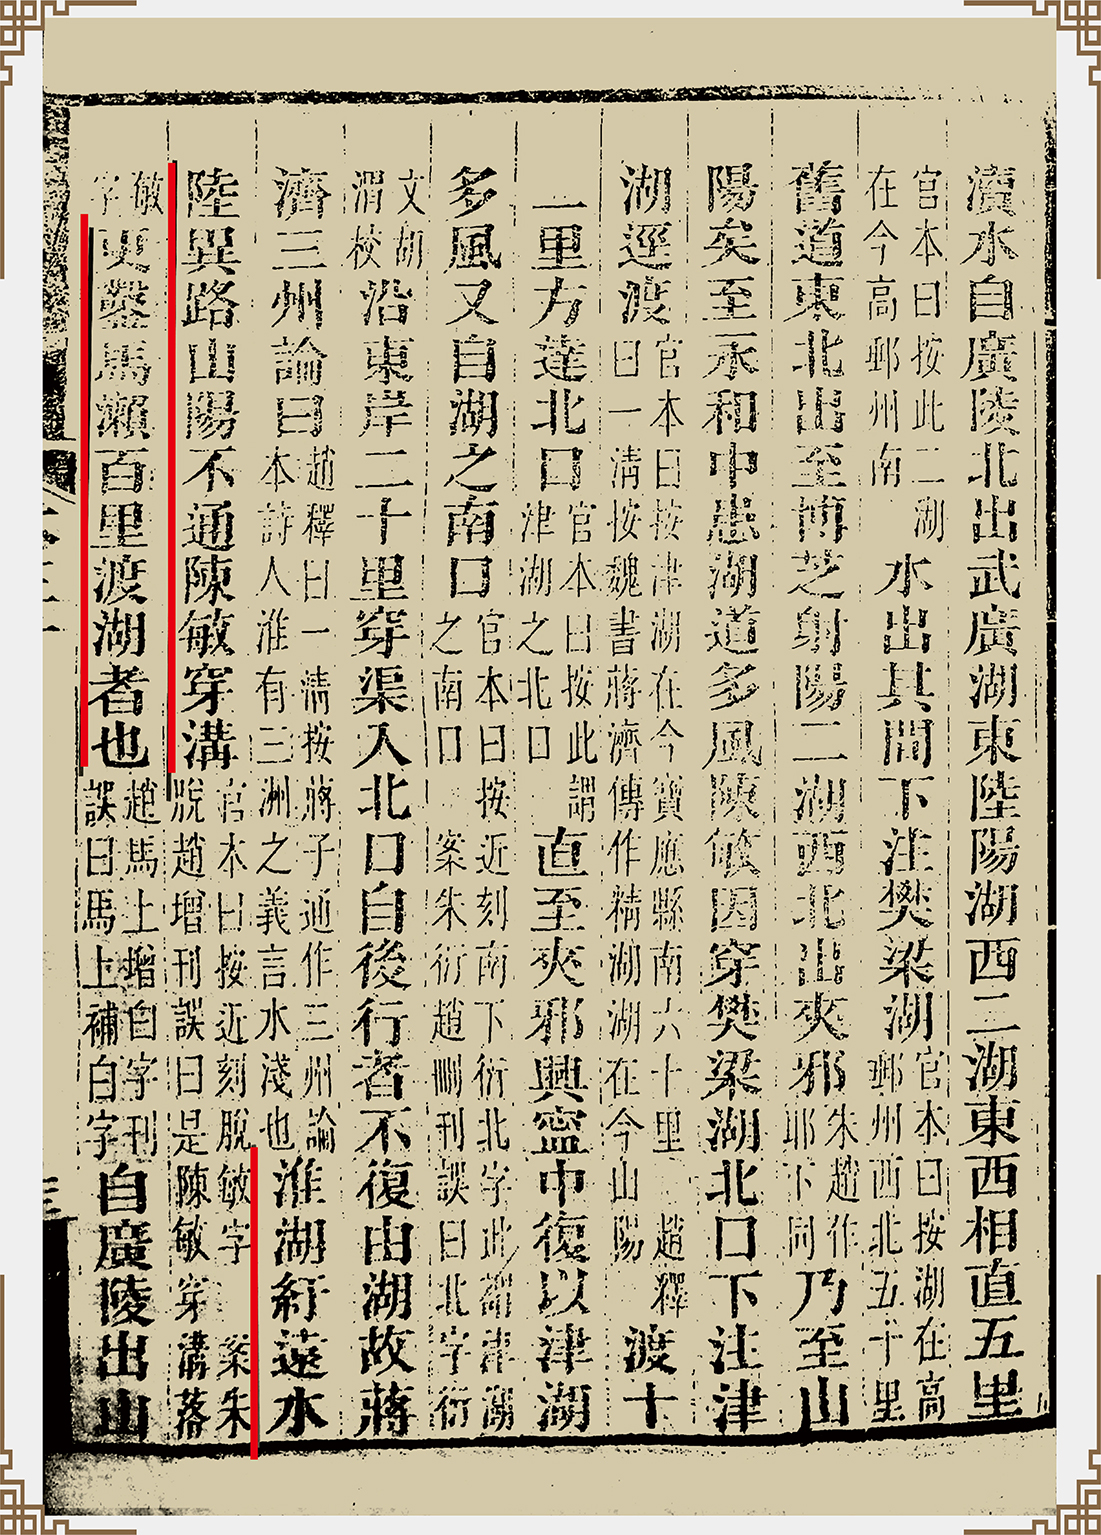 瀆水自廣陵北出武廣湖東陸陽湖西二湖東西相直五里
官本曰按此二湖在今高郵州南水出其間下注樊梁湖官本曰按湖在高郵州西北五十里
舊道東北出至博芝射陽二湖西北出夾邪朱趙作耶下同乃至山
陽矣至永和中患湖道多風陳敏因穿樊梁湖北口下注津
湖逕渡官本曰按津湖在今寶應縣南六十里趙釋曰一清按魏書蔣濟傳作精湖湖在今山陽渡十
一里方達北口官本曰按此謂津湖之北口直至夾邪興寧中復以津湖
多風又自湖之南口官本曰按近刻南下衍北字此謂津湖之南口案朱衍趙刪刊誤曰北字衍
文胡渭校沿東岸二十里穿渠入北口自後行者不復由湖故蔣
濟三州論曰趙釋曰一清按蔣子通作三州論本詩人淮有三洲之義言水淺也淮湖紆遠水
陸異路山陽不通陳敏穿溝官本曰按近刻脫敏字案朱脫趙增刊誤曰是陳敏穿溝落
敏字更鑿馬瀨百里渡湖者也趙馬上增白字刊誤曰馬上補白字自廣陵出山